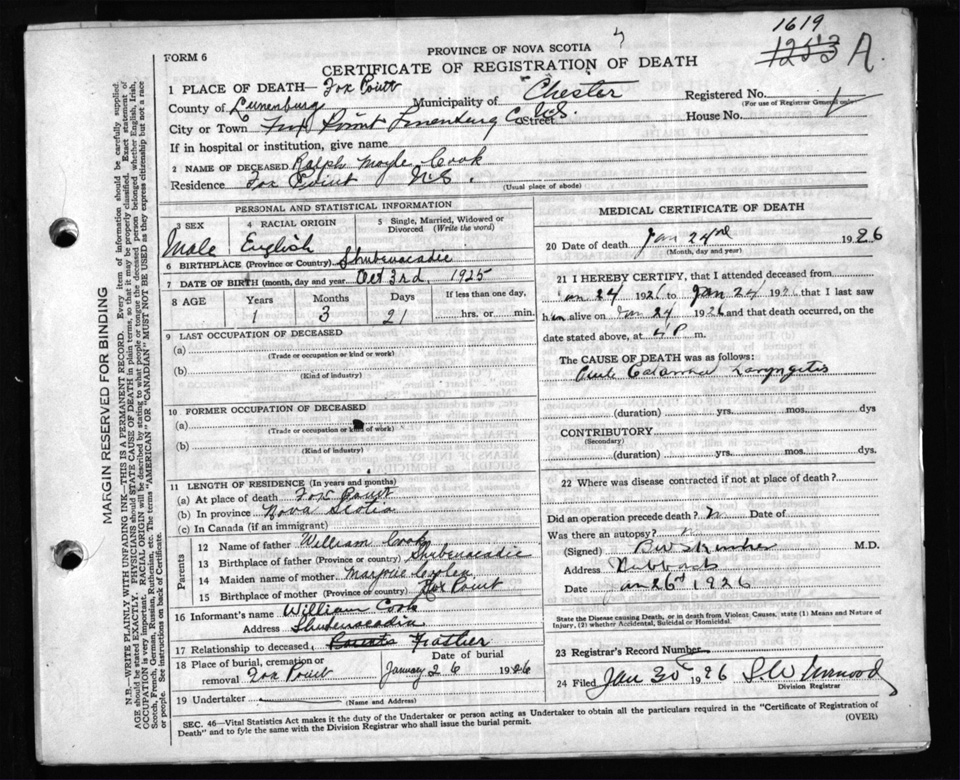 1619
1253 A.
FORM 6
PROVINCE OF NOVA SCOTIA
CERTIFICATE OF REGISTRATION OF DEATH
1 PLACE OF DEATH— Fox Point
County of Lunenburg Municipality of Chester Registered No.
(For use of Registrar General only)
City or Town Fox Point Lunenburg Co. N.S. Street House No.
If in hospital or institution, give name
2 NAME OF DECEASED Ralph Moyle Cook
Residence Fox Point N.S.
(Usual place of abode)
PERSONAL AND STATISTICAL INFORMATION
3 SEX 4 RACIAL ORIGIN 5 Single, Married, Widowed or Divorced (Write the word)
Male English
6 BIRTHPLACE (Province or Country) Shubenacadie
7 DATE OF BIRTH (month, day and year) Oct 3rd, 1925
8 AGE Years Months Days If less than one day,
1 3 21 hrs. or min.
9 LAST OCCUPATION OF DECEASED
(a)
(Trade or occupation or kind or work)
(b)
(Kind of industry)
10 FORMER OCCUPATION OF DECEASED
(a)
(Trade or occupation or kind of work)
(b)
(Kind of industry)
11 LENGTH OF RESIDENCE (In years and months)
(a) At place of death Fox Point
(b) In province Nova Scotia
(c) In Canada (if an immigrant)
Parents
12 Name of father William Cook
13 Birthplace of father (Province or Country) Shubenacadie
14 Maiden name of mother Marjorie
15 Birthplace of mother (Province or country) Fox Point
16 Informant's name William Cook
Address Shubenacadie
17 Relationship to deceased, Parents Father
18 Place of burial, cremation or removal Fox Point Date of burial January 26 1926
19 Undertaker
(Name and Address)
MEDICAL CERTIFICATE OF DEATH
20 Date of death Jan 24 1926
(Month, day and year)
21 I HEREBY CERTIFY, that I attended deceased from
Jan 24 1926 to Jan 24 1926 that I last saw
him alive on Jan 24 1926 and that death occurred, on
date stated above, at 4 P m.
The CAUSE OF DEATH was as follows:
Laryngitis
(duration) yrs. mos. dys
CONTRIBUTORY
(Secondary)
(duration) yrs. mos. dys.
22 Where was disease contracted if not at place of death?
Did an operation precede death? N Date of
Was there an autopsy? N
(Signed) M.D.
Address Hubbards
Date Jan 26 1926
State the Disease causing Death, or in death from Violent Causes, state (1) Means and Nature of Injury, (2) whether Accidental, Suicidal or Homicidal.
23 Registrar's Record Number
24 Filed Jan 30 1926
Division Registrar
SEC. 46—Vital Statistics Act makes it the duty of the Undertaker or person acting as Undertaker to obtain all the particulars required in the "Certificate of Registration of
Death" and to fyle the same with the Division Registrar who shall issue the burial permit.
(OVER)
MARGIN RESERVED FOR BINDING
N.B.—WRITE PLAINLY WITH UNFADING INK—THIS IS A PERMANENT RECORD. Every item of information should be carefully supplied.
AGE should be stated EXACTLY. PHYSICIANS should STATE CAUSE OF DEATH in plain terms, so that it may be properly classified. Exact statement of
OCCUPATION is very important. RACIAL ORIGIN will be described by stating to what people or tongue the deceased person belonged whether English, Irish,
Scotch, French, German, Russian, Ruthenian, etc. The terms "AMERICAN" OR "CANADIAN" MUST NOT BE USED as they express citizenship but not a race
or people. See instructions on back of Certificate.